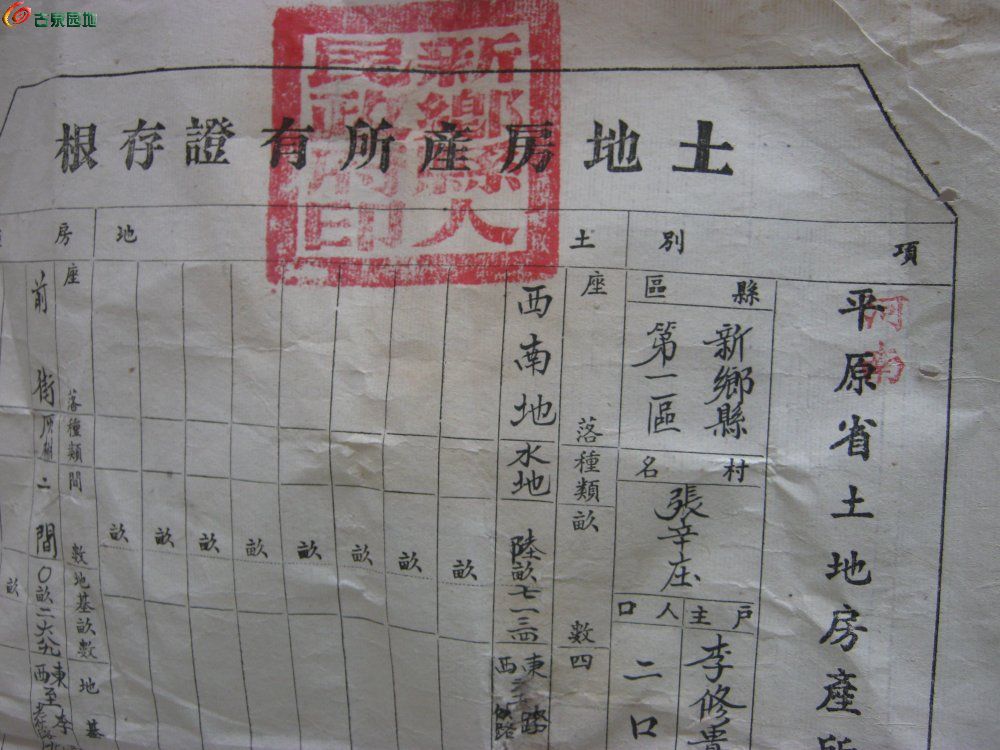 古泉园地
新鄉縣人
民政府印
土地房產所有證存根
項別
土地
房
河南
平原省土地房產所
縣
新鄉縣
村
名
張辛庄
戶主
李修貴
區
第一區
人口
二口
座落
種類
畝數
四
西南地
水地
陸畝七一三四
東
西
路
畝
畝
畝
畝
畝
畝
畝
畝
座落
種類
間數
地基畝數
地基
前街
二間
〇畝二六九
東至李
西
畝